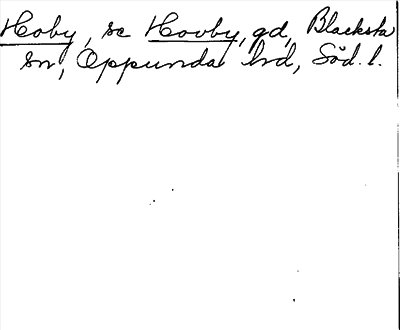 Hoby, se Hovby, gd, Blacksta
sn, Oppunda hd, Söd. l.